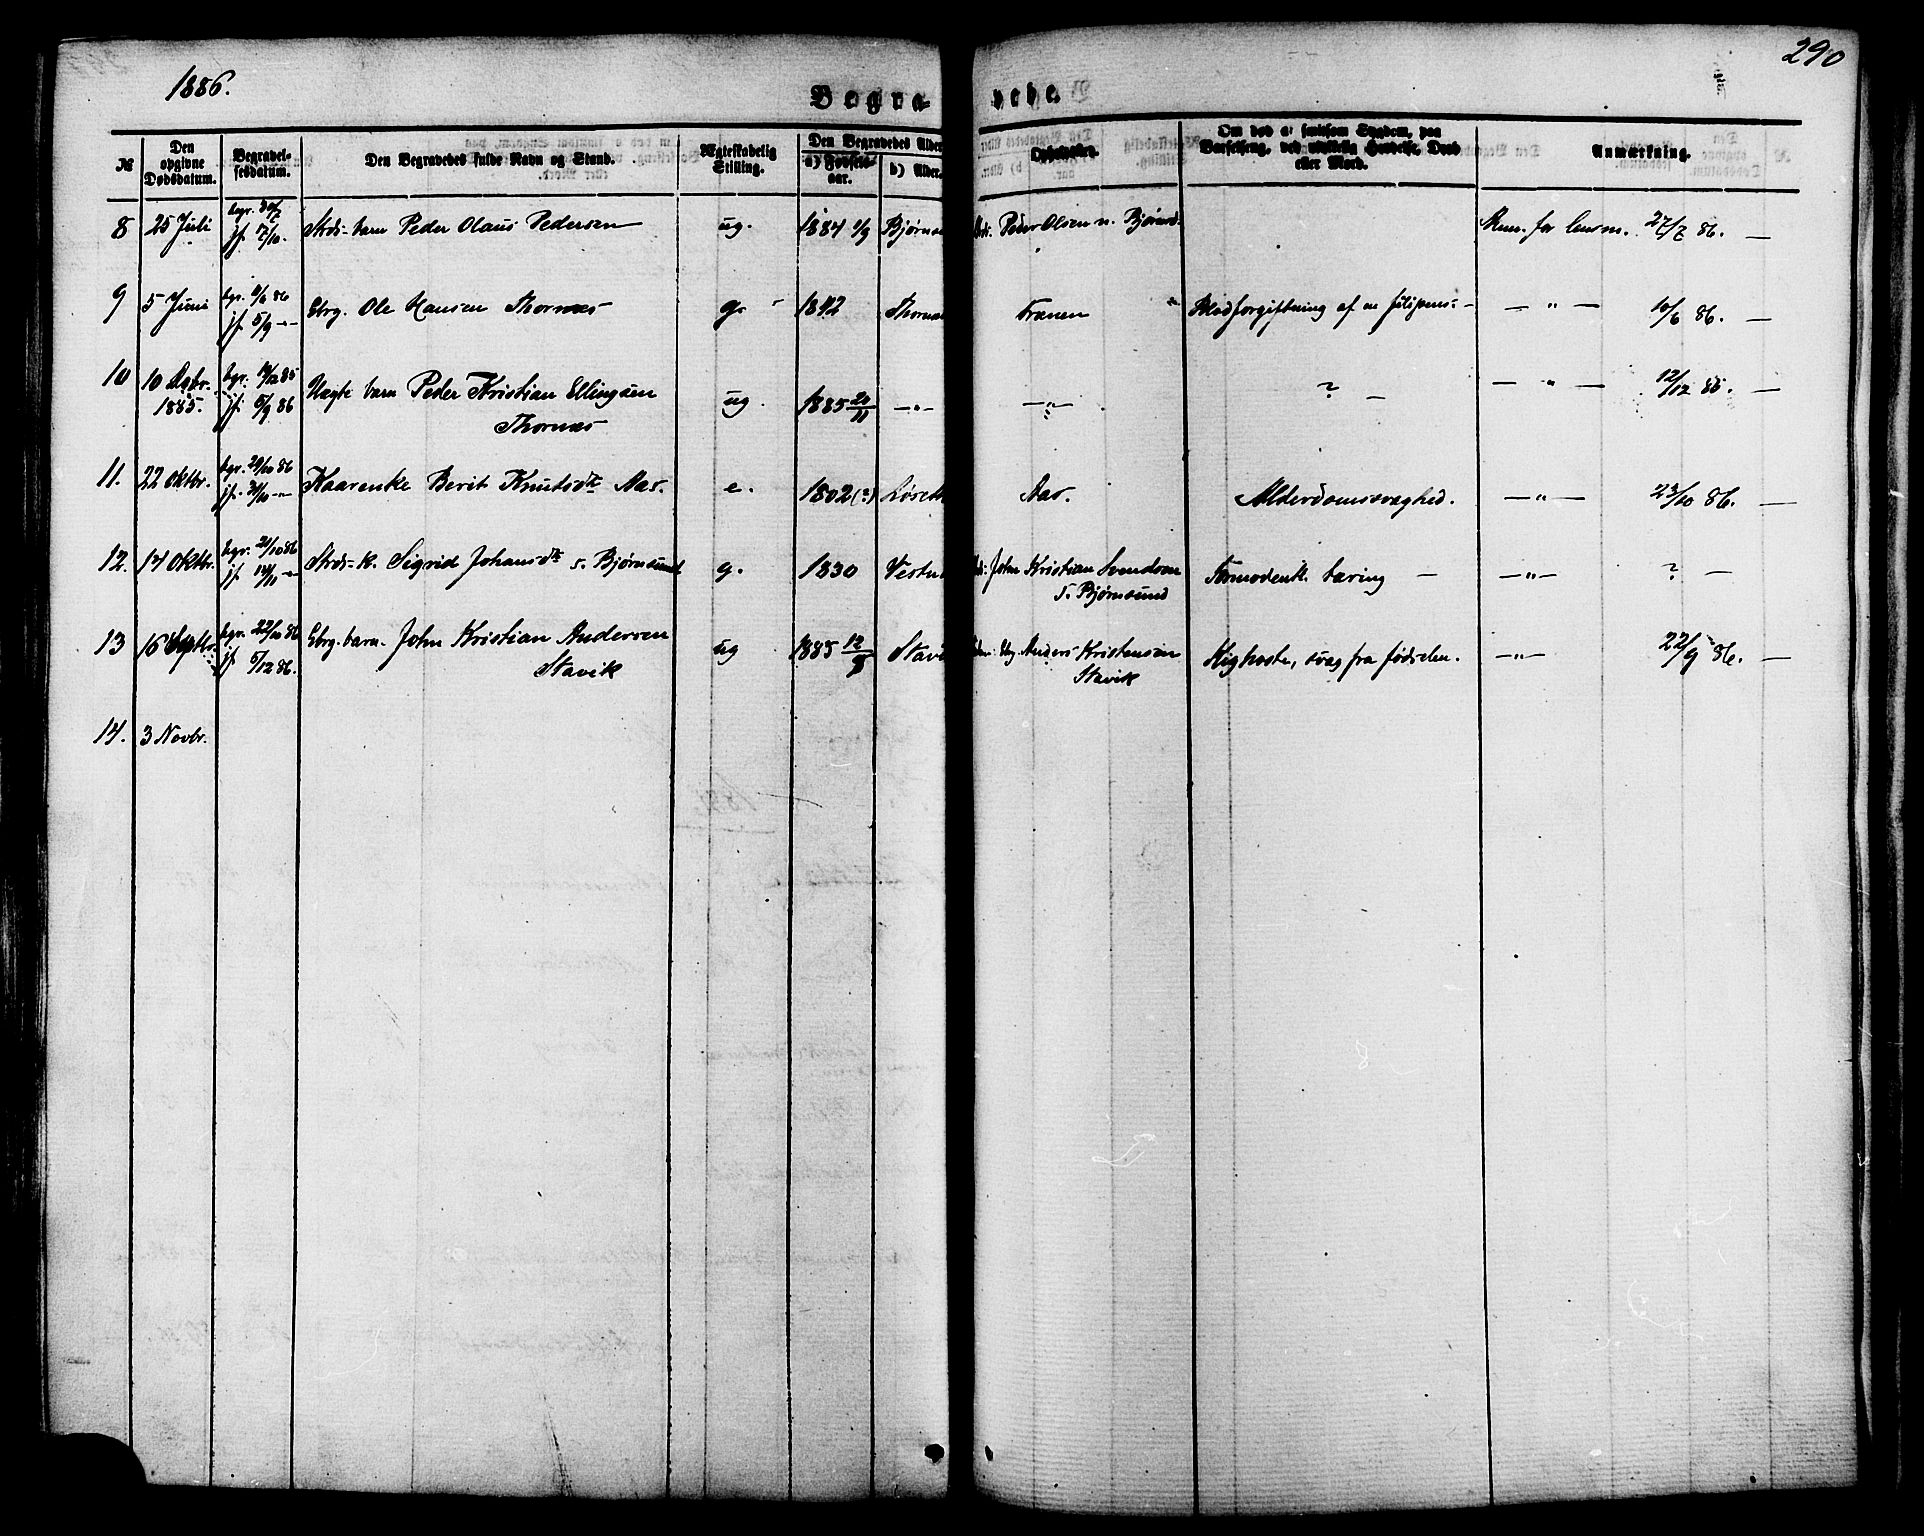 290
1886.
Begravede.
№ | Den opgivne Dødsdatum. | Begravelsesdatum. | Den Begravedes fulde Navn og Stand. | Ægteskabelig Stilling. | Den Begravedes Alder a) Fødselsaar. | b) Alder. | Opholdssted. | Om død af smitsom Sygdom, paa Barselseng, ved ulykkelig Hændelse, Drab eller Mord. | Anmærkning.
8 | 25 Juli | begr. 30/7 jf. 17/10. | Strds-barn Peder Olaus Pedersen | ug. | 1884 | Bjørnsu | Strds: Peder Olsen n. Bjørnsd. | | Anm. for lensm. 27/7 86. —
9 | 5 Juni | bgr. 11/6 86 jf. 5/9 -"- | Gbrg. Ole Hansen Thornæs | g. | 1842 | Thornæs | Frænen | Blodforgiftning af en filipens. | — " — 10/6 86. —
10 | 10 Dcbr. 1885. | bgr. 85 jf. 5/9 86 | Uægte barn Peder Kristian Ellingsen
Thornæs | ug. | 1885 20/11 | —"— | —"— | ? — | — " — 12/12 85. —
11. | 22 Oktbr. | bgr. 29/10 86 jf. 31/10 -"- | Kaarenke Berit Knutsdtr Aas. | e. | 1802 (?) | Løseth | Aas. | Alderdomssvaghed. | —"— 23/10 86. —
12. | 14 Oktbr. | bgr. 21/10 86 jf. 14/11 -"- | Strds-k. Sigrid Johansdtr s. Bjørnsund | g. | 1830 | Vestn | Strds: John Kristian Svendsen
s. Bjørnsund | Formodentl. tæring — | —"— ? —
13 | 16 Septbr. | bgr. 86 jf. 5/12 86. | Gbrg. barn. John Kristian Andersen
Stavik | ug | 1885 12/8 | Stavi | Gbrg. Anders Kristensen
Stavik | Kighoste, svag fra fødselen. | —"— 22/9 86. —
14. | 3 Novbr.